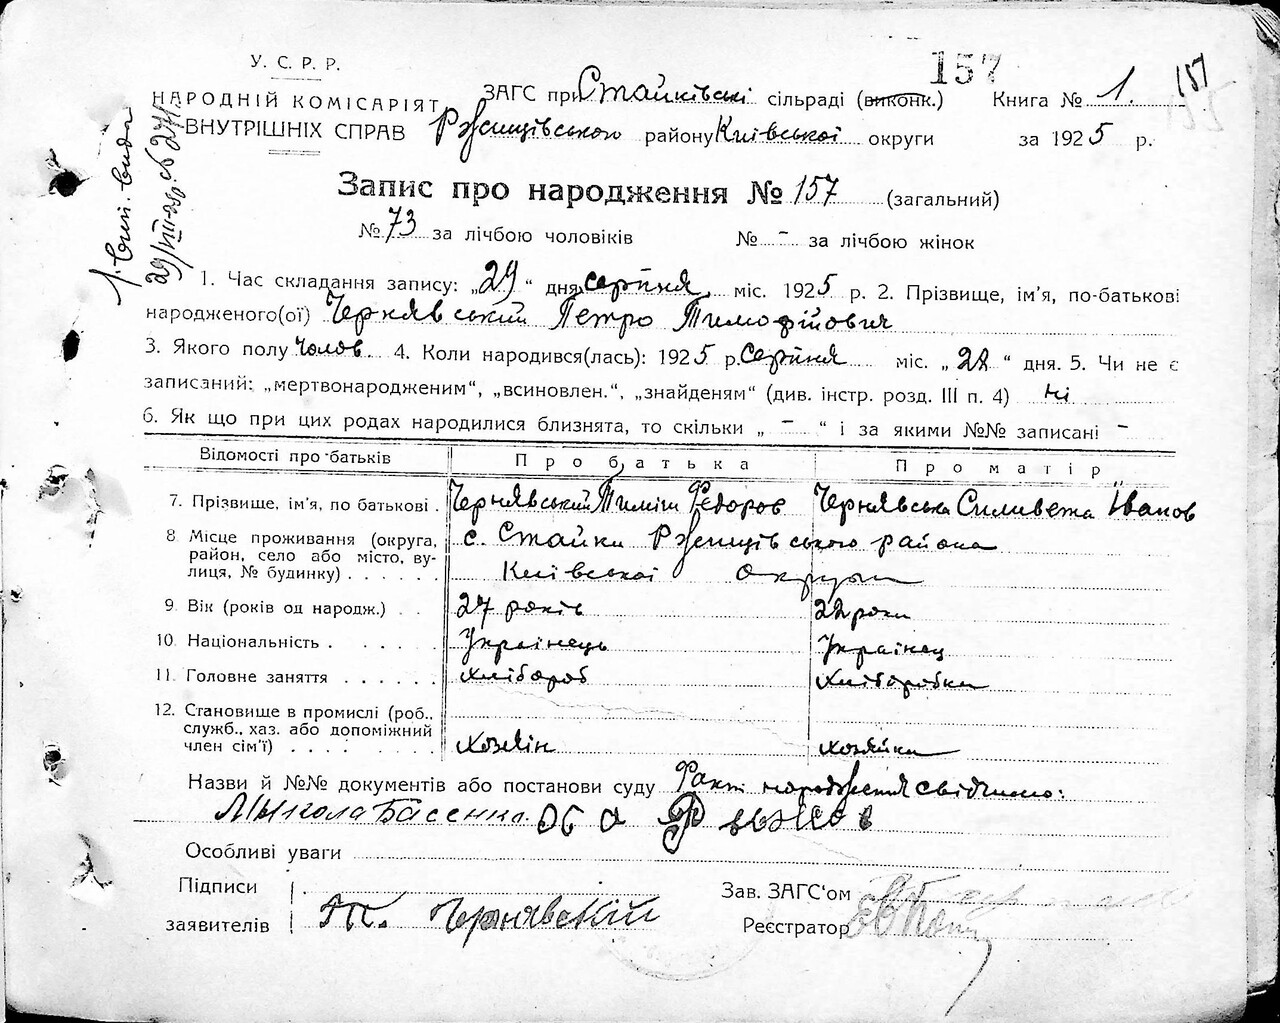 У. С. Р. Р.
НАРОДНІЙ КОМІСАРІЯТ
ВНУТРІШНІХ СПРАВ
157
157
ЗАГС при Стайківські сільраді (виконк.) Книга № 1.
Ржищівського району Київської округи за 1925 р.
Запис про народження № 157 (загальний)
№ 73 за лічбою чоловіків № - за лічбою жінок
1. Час складання запису: „29“ дня серпня міс. 1925 р. 2. Прізвище, ім'я, по-батькові
народженого(ої) Чернявський Петро Тимофійович
3. Якого полу Чолов. 4. Коли народився(лась): 1925 р. серпня міс. „28“ дня. 5. Чи не є
записаний: „мертвонародженим“, „всиновлен.“, „знайденям“ (див. інстр. розд. III п. 4) ні
6. Як що при цих родах народилися близнята, то скільки „ - “ і за якими №№ записані -
Відомості про батьків Про батька Про матір
7. Прізвище, ім'я, по батькові . Чернявський Тиміш Федоров Чернявська Силивета Іванов
8 Місце проживання (округа, район, село або місто, вулиця, № будинку) . . . . . . с. Стайки Ржищівського района
Київської Округи
9. Вік (років од народж.) . . 27 років 22 роки
10. Національність . . . . . . Українець Українец
11. Головне заняття . . . . . . Хлібороб Хліборобка
12. Становище в промислі (роб., служб., хаз. або допоміжний член сім'ї) . . . . . . хозяїн хозяйка
Назви й №№ документів або постанови суду Факт народження свідчимо:
Микола Басенко
Особливі уваги
Підписи
заявителів Т. Чернявский
Зав. ЗАГС'ом
Реєстратор